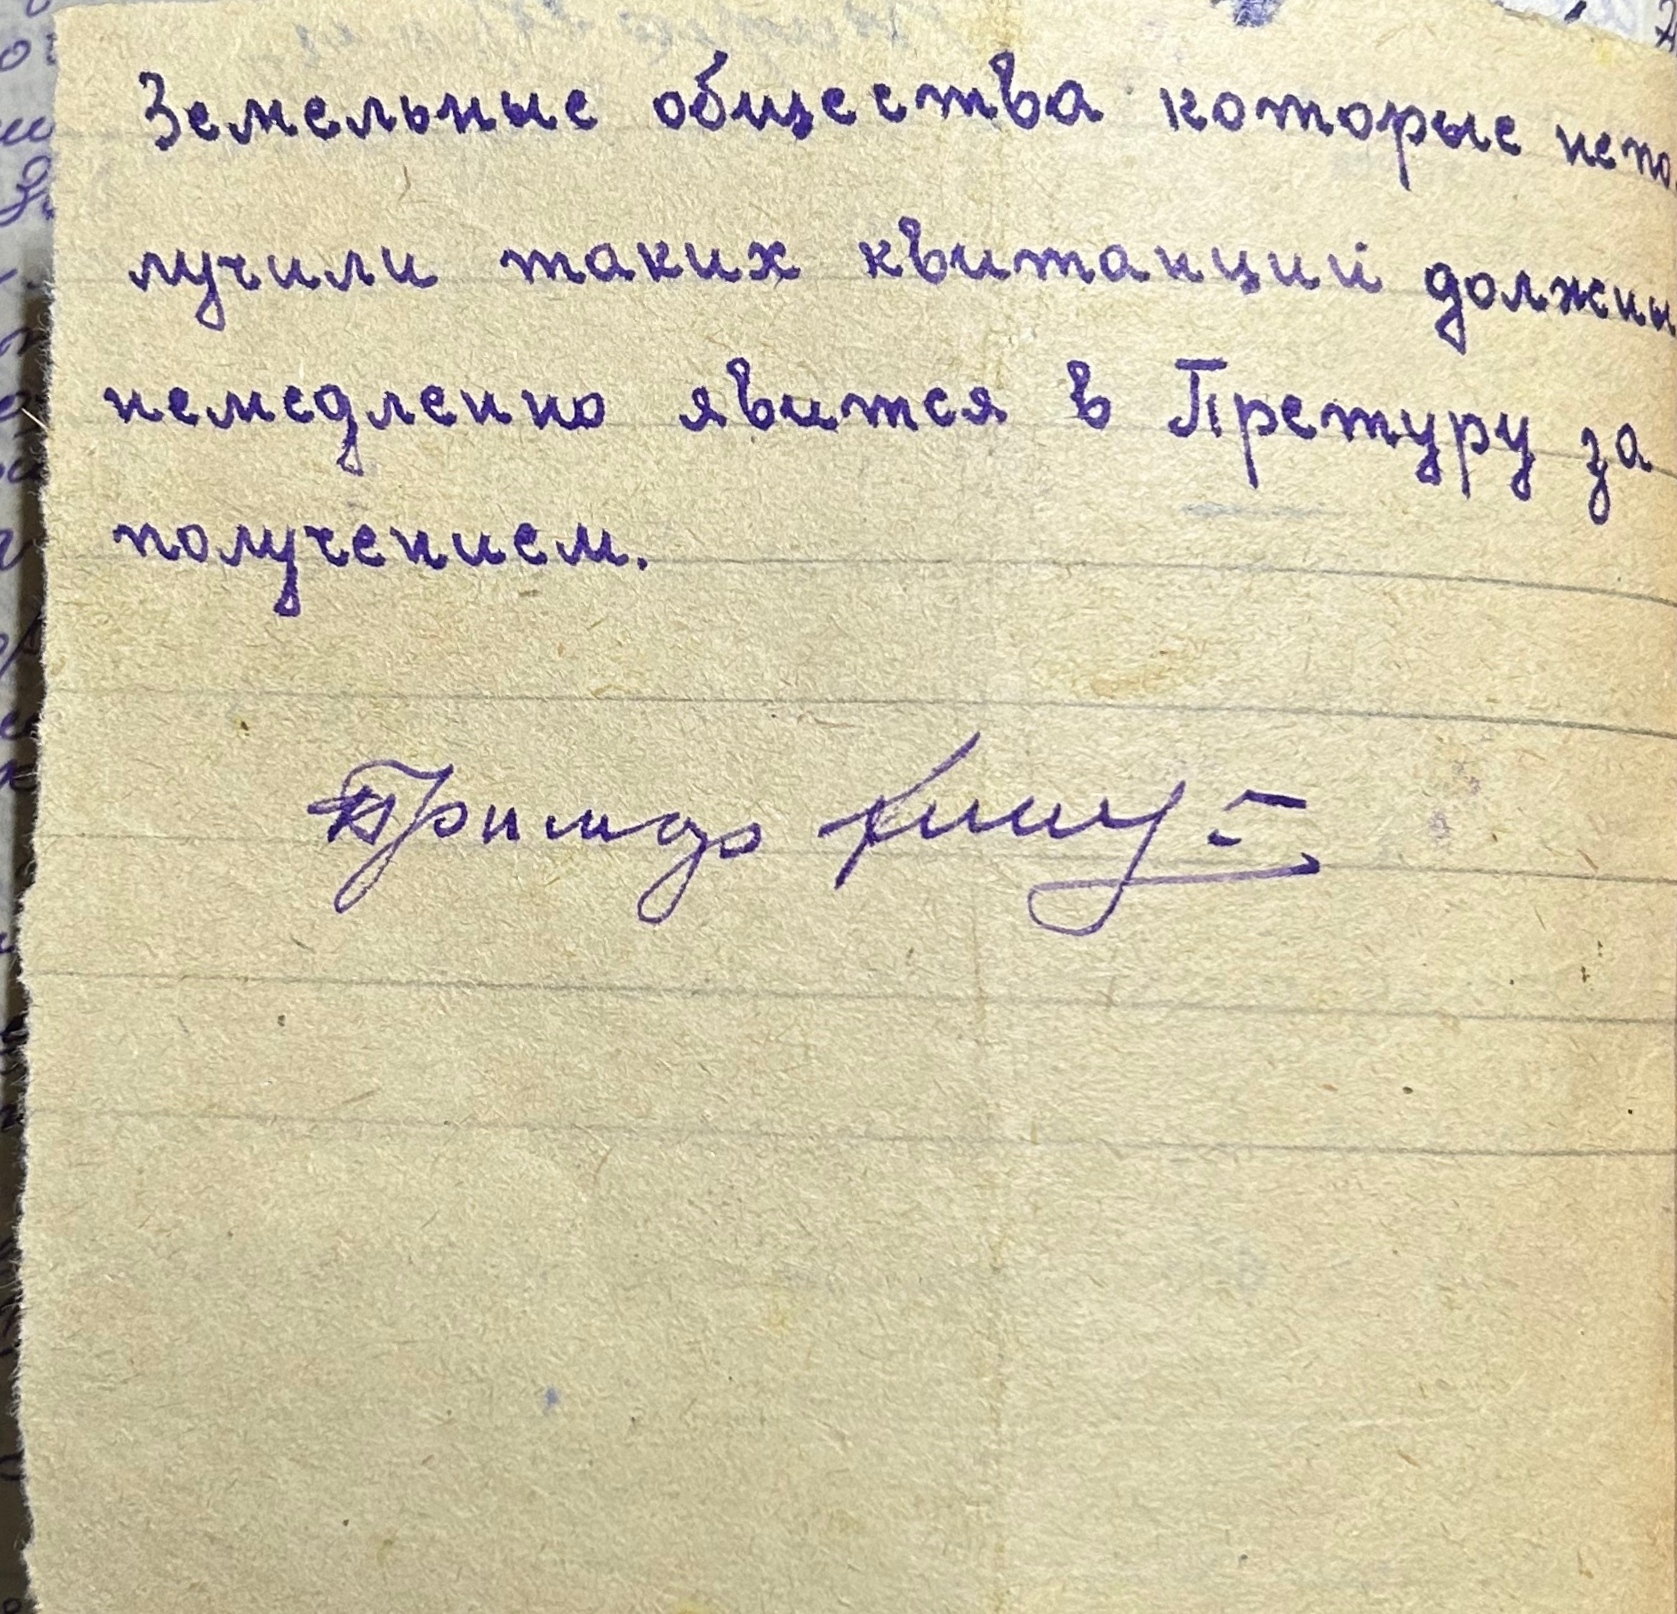 Земельные общества которые непо-
лучили таких квитанций должны
немедленно явится в Претуру за
получением.
Примар